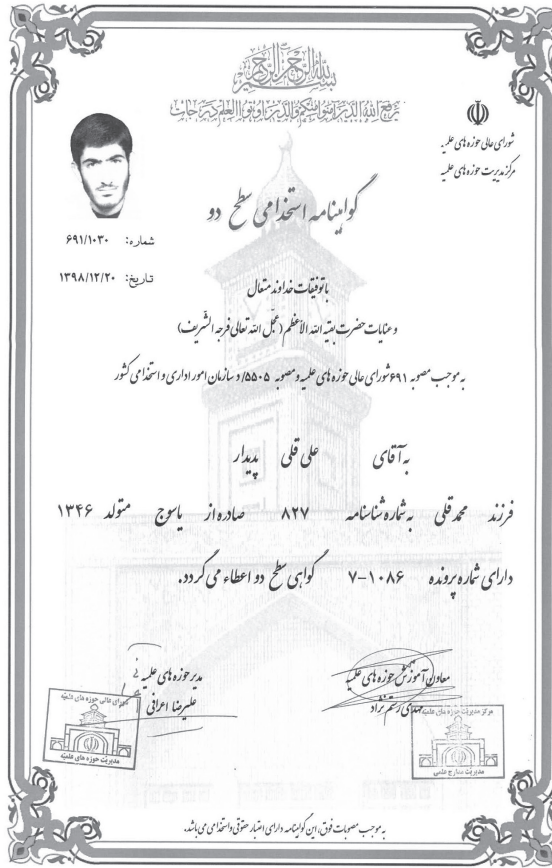 بسم الله الرحمن الرحیم
یرفع الله الذین آمنوا منکم والذین اوتوا العلم درجات
شورای عالی حوزه های علمیه
مرکز مدیریت حوزه های علمیه
گواهینامه استخدامی سطح دو
شماره: ۶۹۱/۱۰۳۰
تاریخ: ۱۳۹۸/۱۲/۲۰
باتوفیقات خداوند متعال
و عنایات حضرت بقیه الله الأعظم (عجّل الله تعالی فرجه الشریف)
به موجب مصوبه ۶۹۱ شورای عالی حوزه های علمیه و مصوبه ۵۵۰۵/د سازمان امور اداری و استخدامی کشور
به آقای علی قلی پدیدار
فرزند محمد قلی به شماره شناسنامه ۸۲۷ صادره از یاسوج متولد ۱۳۴۶
دارای شماره پرونده ۷-۱۰۸۶ گواهی سطح دو اعطاء می گردد.
معاون آموزش حوزه های علمیه
مهدی رستم نژاد
مدیر حوزه های علمیه
علیرضا اعرافی
مرکز مدیریت حوزه های علمیه
مدیریت مدارج علمی
شورای عالی حوزه های علمیه
مدیریت حوزه های علمیه
به موجب مصوبات فوق، این گواهینامه دارای اعتبار حقوقی و استخدامی می باشد.